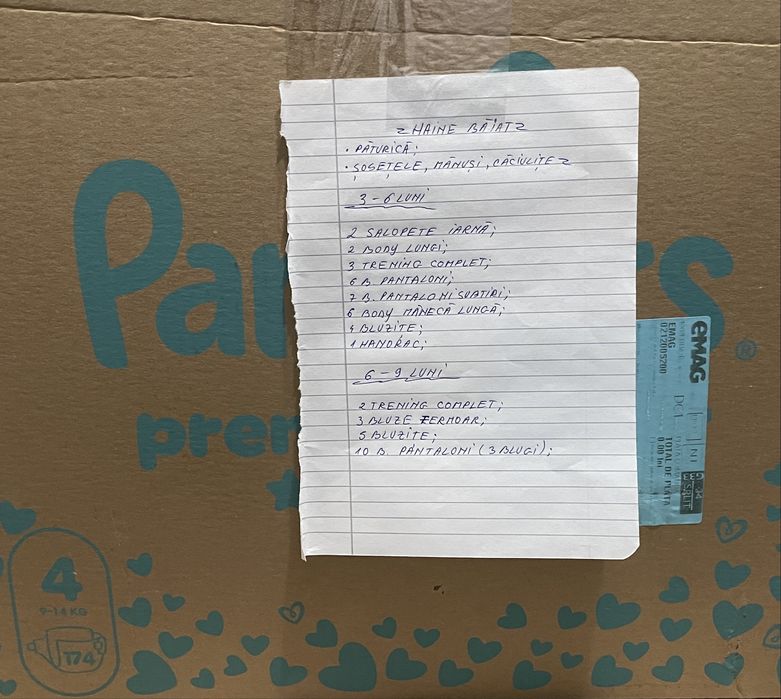 HAINE BĂIAT
• PĂTURICĂ;
• ȘOSEȚELE, MĂNUȘI, CĂCIULIȚE
3-6 LUNI
2 SALOPETE IARNĂ;
2 BODY LUNGI;
3 TRENING COMPLET;
6 B. PANTALONI;
7 B. PANTALONI SUBȚIRI;
6 BODY MÂNECĂ LUNGĂ;
4 BLUZIȚE;
1 HANORAC;
6-9 LUNI
2 TRENING COMPLET;
3 BLUZE FERMOAR;
5 BLUZIȚE;
10 B. PANTALONI (3 BLUGI);
eMAG
EMAG
0212005200
TOTAL DE PLATA
0.00 lei
4
9-14 KG
174